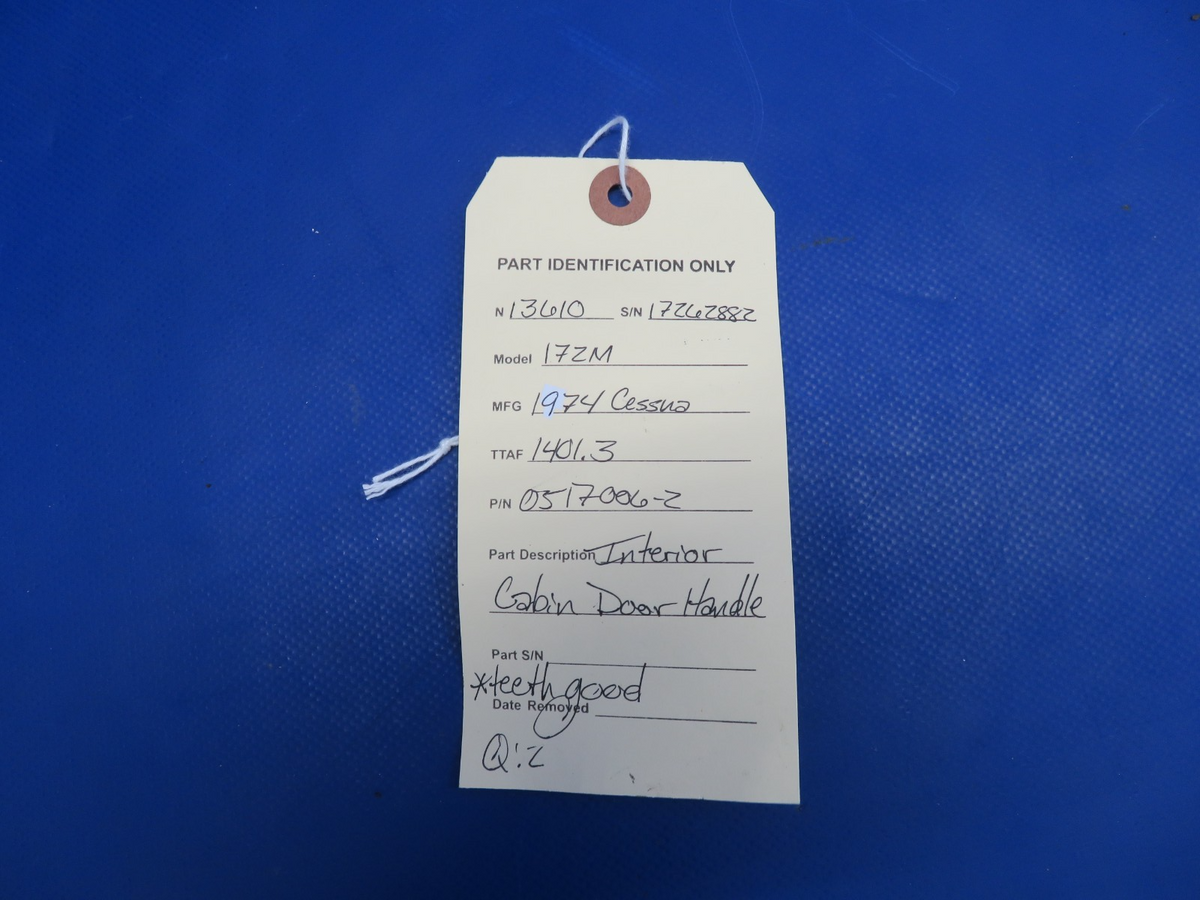 PART IDENTIFICATION ONLY
N 13610 S/N 17262882
Model 172M
MFG 1974 Cessna
TTAF 1401.3
P/N 0517006-2
Part Description Interior
Cabin Door Handle
Part S/N
*teeth good
Date Removed
Q:2